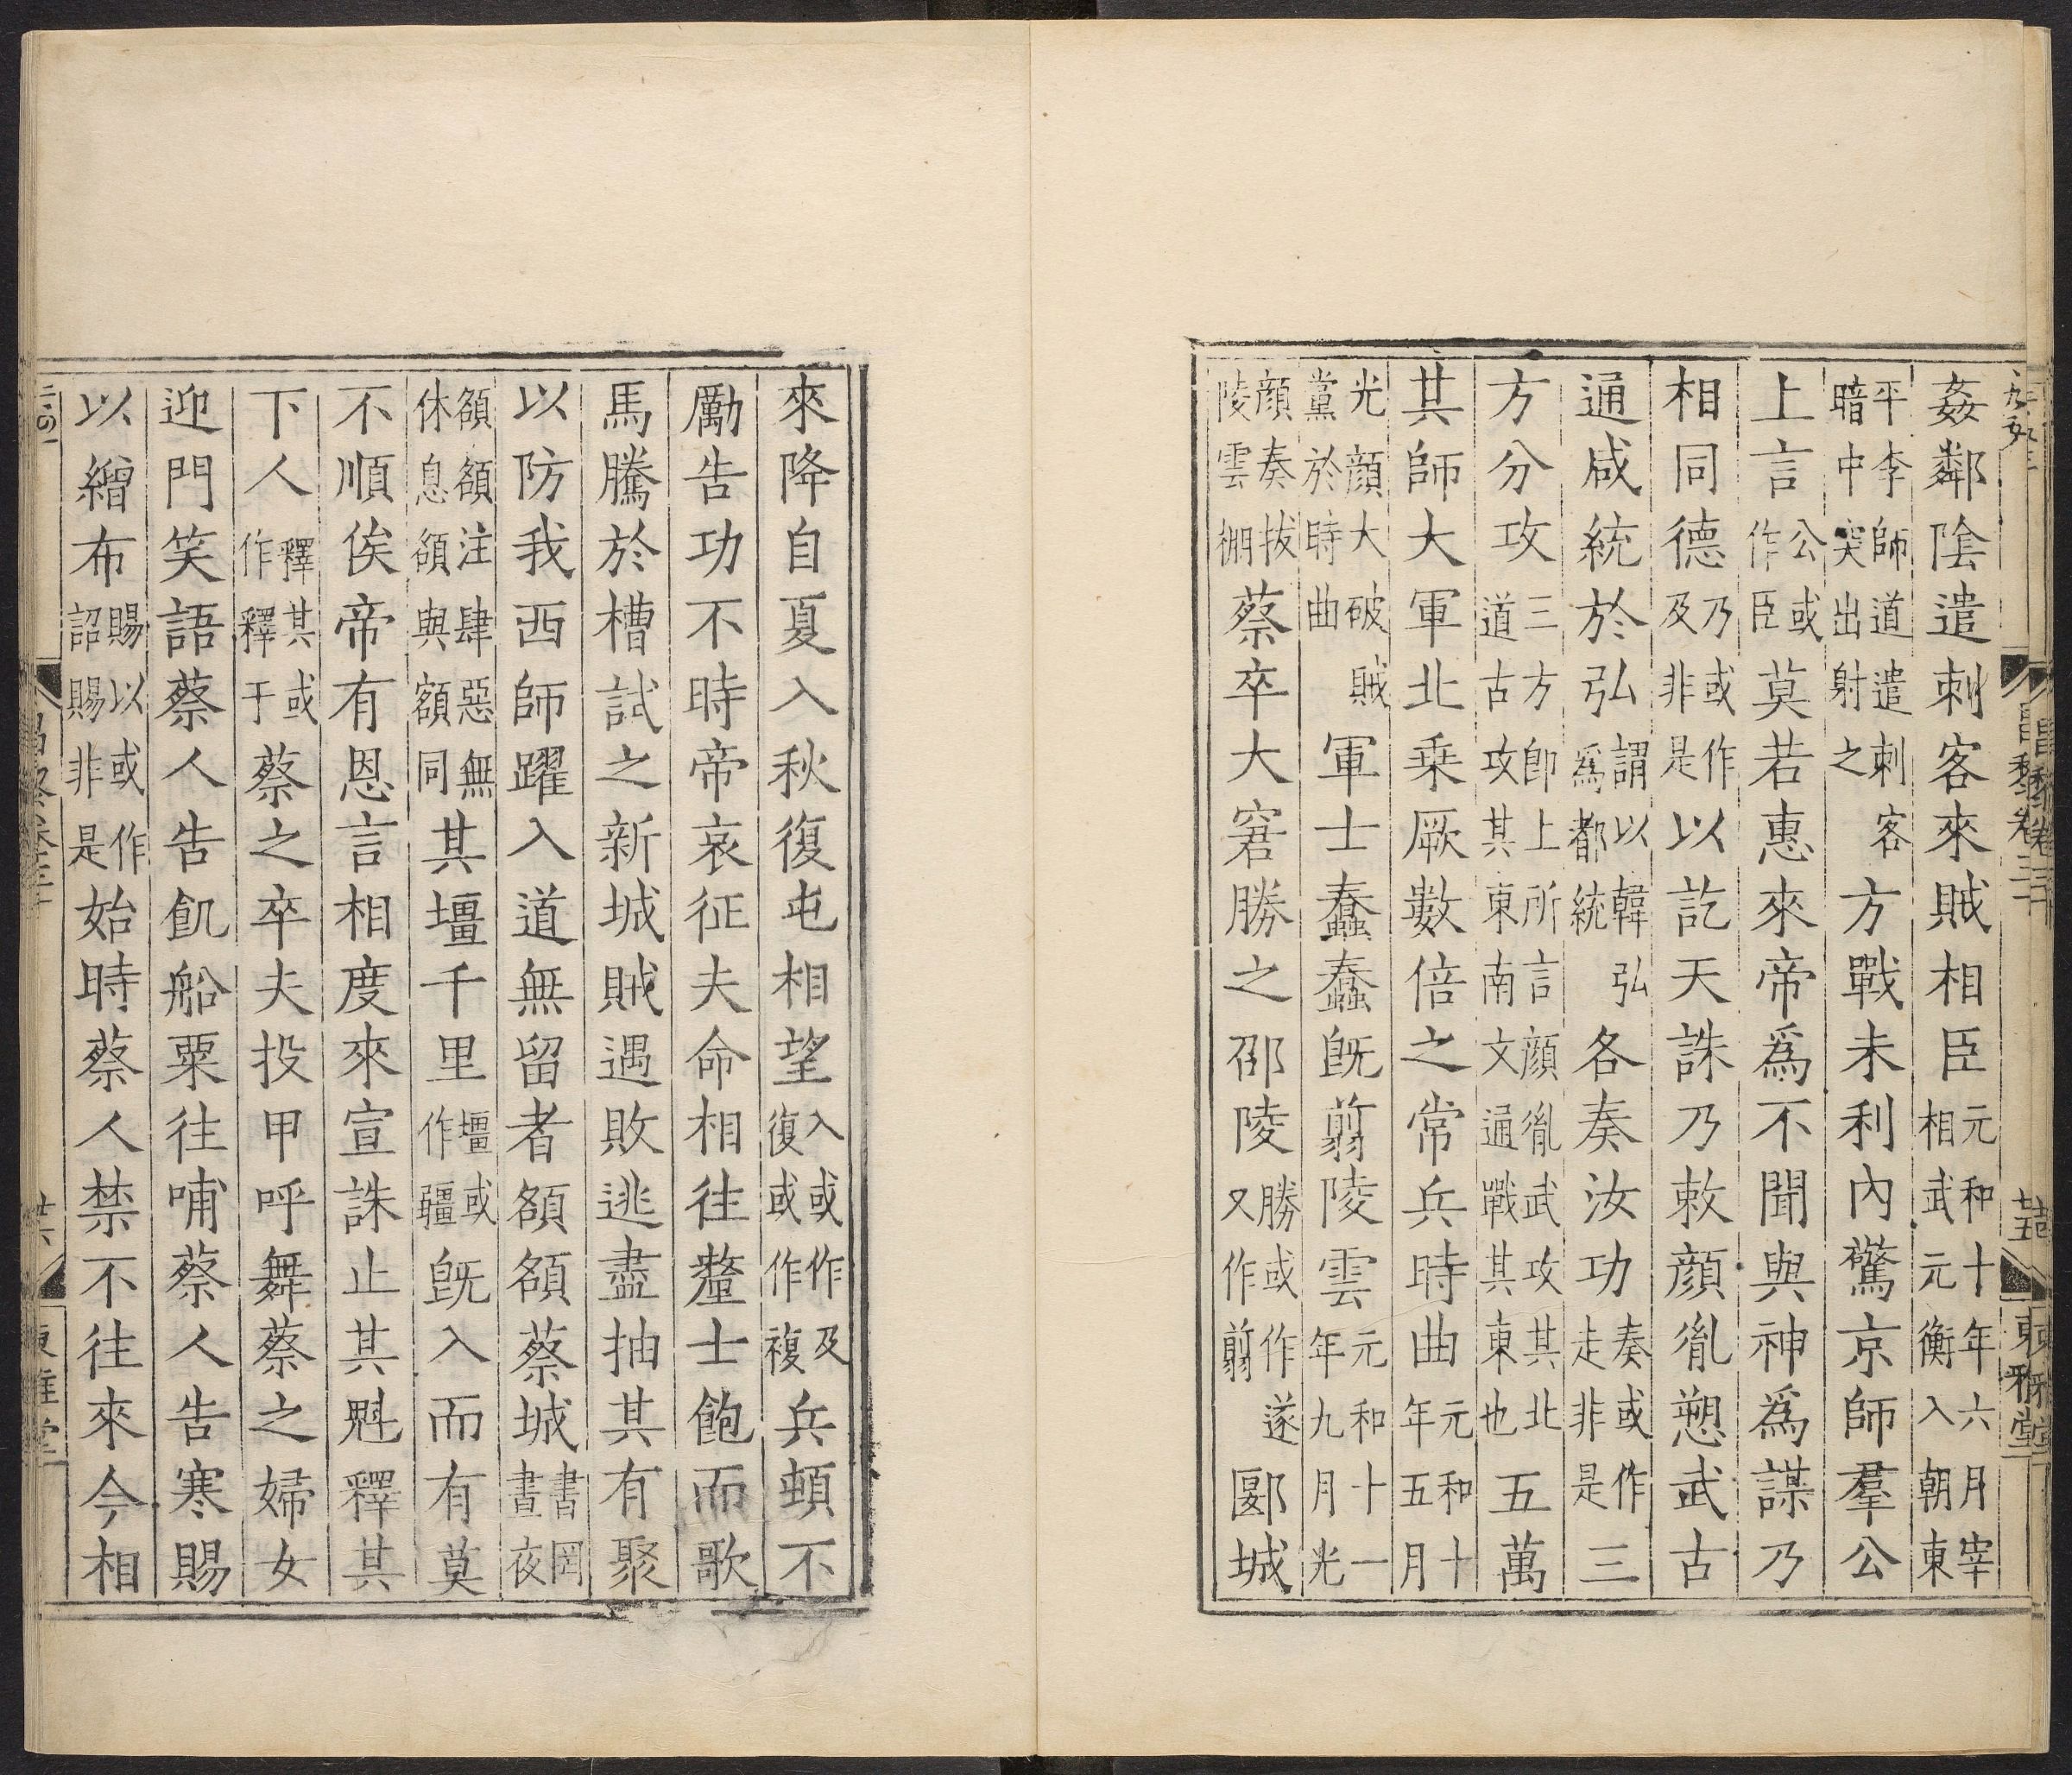 姦鄰陰遣刺客來賊相臣元和十年六月宰相武元衡入朝東
平李師道遣刺客暗中突出射之方戰未利內驚京師羣公
上言公或作臣莫若惠來帝爲不聞與神爲謀乃
相同德乃或作及非是以訖天誅乃敕顏胤愬武古
通咸統於弘謂以韓弘爲都統各奏汝功奏或作走非是三
方分攻三方卽上所言顏胤武攻其北道古攻其東南文通戰其東也五萬
其師大軍北乗厥數倍之常兵時曲元和十年五月
光顏大破賊黨於時曲軍士蠢蠢旣翦陵雲元和十一年九月光
顏奏拔陵雲柵蔡卒大窘勝之邵陵勝或作遂又作翦郾城
昌黎卷三十
廿五
東雅堂
來降自夏入秋復屯相望入或作及復或作複兵頓不
勵告功不時帝哀征夫命相往釐士飽而歌
馬騰於槽試之新城賊遇敗逃盡抽其有聚
以防我西師躍入道無留者頟頟蔡城書罔晝夜
頟頟注肆惡無休息頟與額同其壃千里壃或作疆旣入而有莫
不順俟帝有恩言相度來宣誅止其魁釋其
下人釋其或作釋于蔡之卒夫投甲呼舞蔡之婦女
迎門笑語蔡人告飢船粟往哺蔡人告寒賜
以繒布賜以或作詔賜非是始時蔡人禁不往來今相
昌黎卷三十
廿六
東雅堂